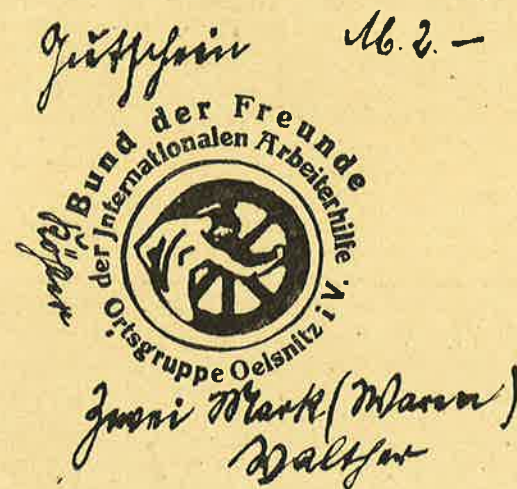 Gutschein M. 2.—
Bund der Freunde
der Internationalen Arbeiterhilfe
Ortsgruppe Oelsnitz i V.
Zwei Mark (Waren)
Walther